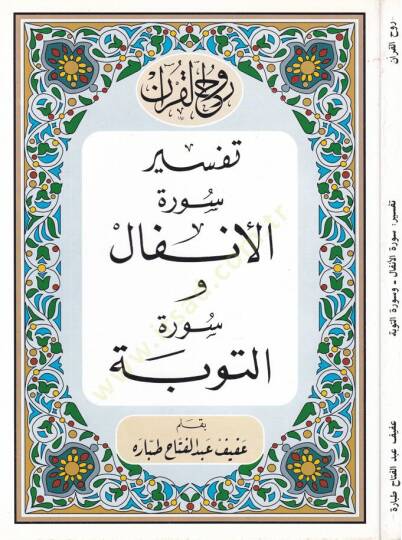 روح القرآن
تفسير
سورة
الأنفال
و
سورة
التوبة
بقلم
عفيف عبد الفتاح طباره
روح القرآن
تفسير: سورة الأنفال - وسورة التوبة
عفيف عبد الفتاح طبارة